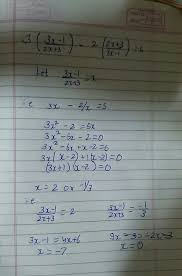 3(3x-1/2x+3) - 2(2x+3/3x-1) = 5
Let 3x-1/2x+3 = x
i.e 3x - 2/x = 5
3x² - 2 = 5x
3x² - 5x - 2 = 0
3x² - 6x + x - 2 = 0
3x(x-2)+1(x-2)=0
(3x+1)(x-2)=0
x = 2 or -1/3
i.e
3x-1/2x+3 = 2 3x-1/2x+3 = -1/3
3x-1 = 4x+6 9x-3 = -2x-3
x = -7 x = 0